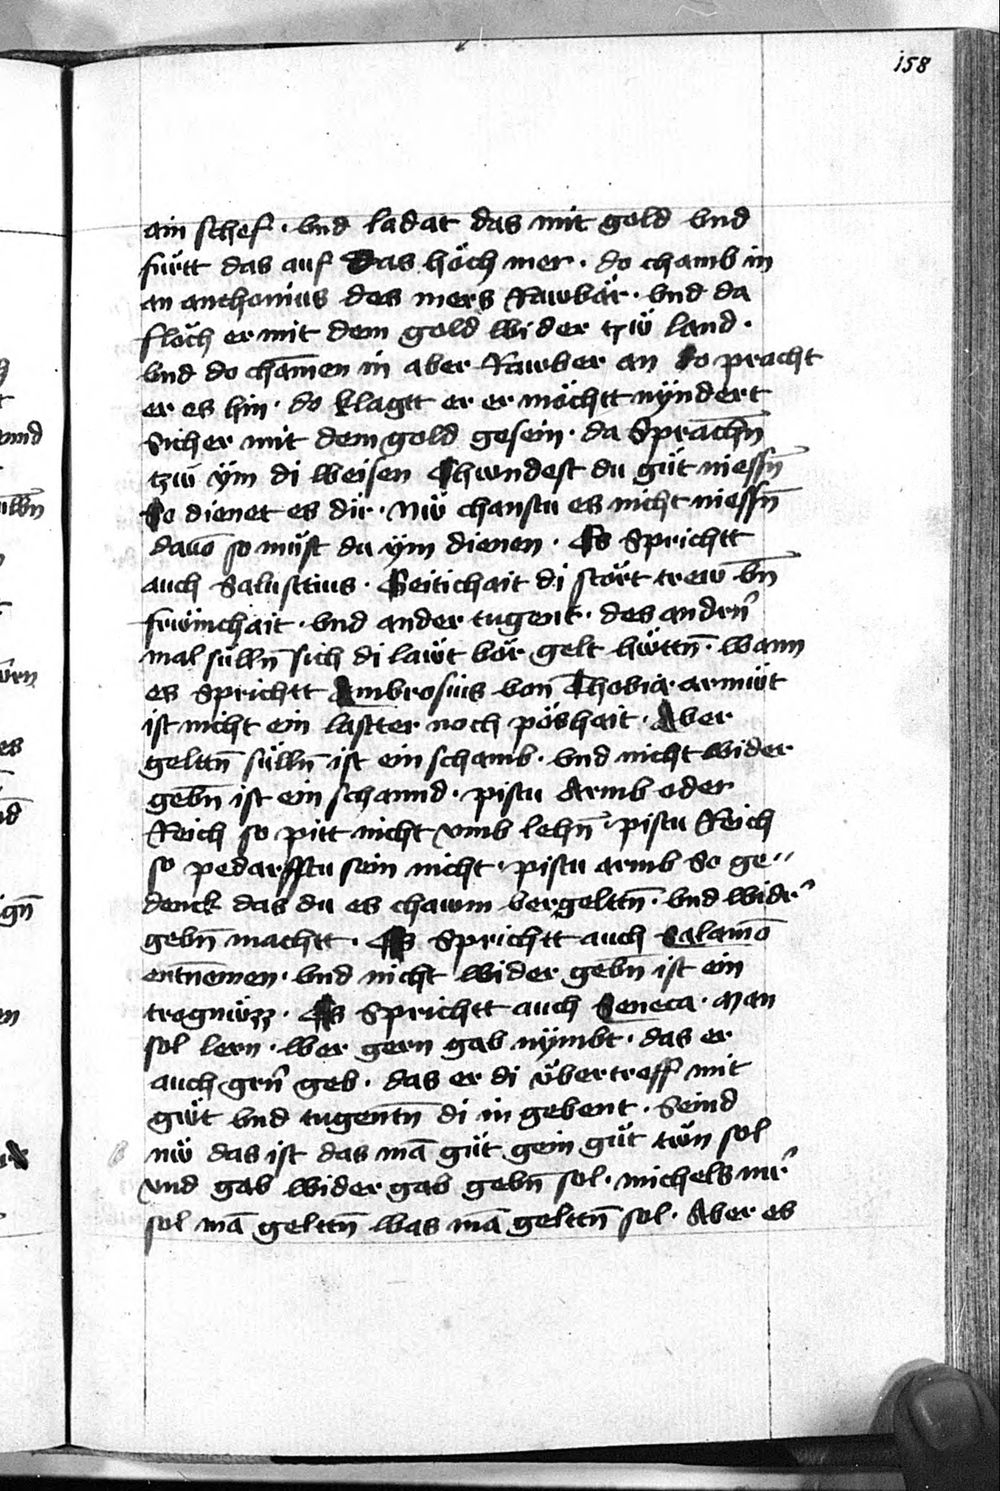 158
ain schef · vnd ladat das mit gold vnd
fürtt das auf das höch mer · do chamb in
an anthonius des mers Rawbär · vnd da
flöch er mit dem gold wider tzw̎ land ·
vnd do chām̄en in aber Rawber an do pracht
er es hin · do klagtt er er möchtt nÿndert
Sicher mit dem gold gesein · da Sprachn̄
tzw̎ ÿm di weisen Chundest du gu̎t niessn̄
So dienet es dir · Nw̎ chanstu es nicht niessn̄
dauō so mu̎st du ÿm dienen · Es Sprichtt
auch Salusttius · Geitichait di störtt trew vn̄
frw̎mchait · vnd ander tugent · des andrn̄
mal sülln̄ sich di law̎t vor gelt hw̎ttn̄ · wann
es Sprichtt Ambrosius von Thobia armw̎t
ist nicht ein lastter noch pöshait · Aber
gelttn̄ sülln̄ ist ein schamb · vnd nicht wider
gebn̄ ist ein schannd · pistu Armb oder
Reich so pitt nicht vmb lehn̄ · pistu Reich
so pedarfftu sein nicht · pistu armb So ge〃
denck das du es chawm vergelttn̄ · vnd widr̄
gebn̄ machtt · Es Sprichtt auch Salamō
entnemen · vnd nicht wider gebn̄ ist ein
tragnw̎zz · Es Sprichtt auch Seneca · Man
sol lern · wer gern gab nÿmbt · das er
auch grn̄ geb · das er di v̎bertreff mit
gw̎t vnd tugentn̄ di in gebent · Seind
nw̎ das ist das mā gu̎t gein gu̎t tw̎n sol
vnd gab wider gab gebn̄ sol · michels mr̄
sol mā gelttn̄ was mā gelttn̄ sol · Aber es